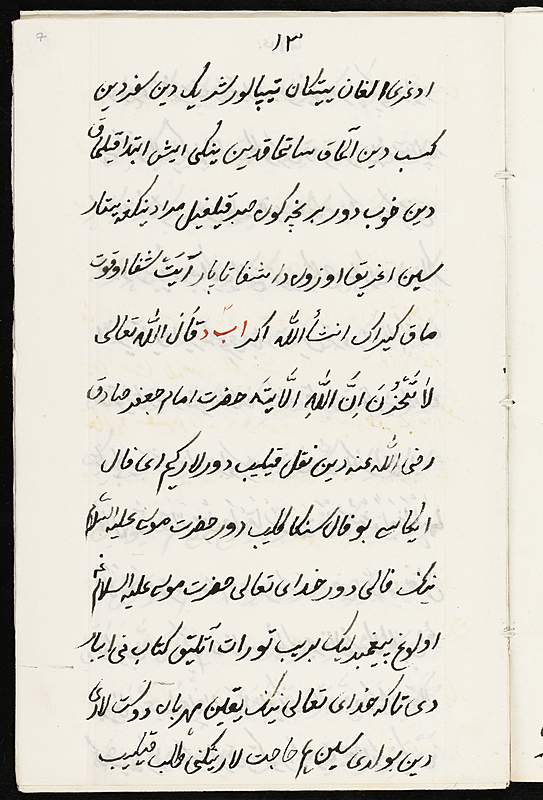 ۱۳
اوغری الغان ییتکان تیپالور شریک دین سفردین
کسب دین آلماق ساتماقدین ینکی ایش ابتدا قیلماق
دین خوب دور بر نچه کون صبر قیلغیل مرادینکغه ییتار
سین اغریق اوزوه دا شفا تاپار آیَتْ شفا اوقوت
ماق کیراک انشأ الله اکر اب د قَالَ اللّٰه تعالی
لَا تَحْزَنْ اِنَّ اللّٰهَ الَّا یَتَه حضرت امام جعفر صادق
رضی اللّٰه عنه دین نقل قیلیب دورلار کیم ای فال
ایکاسی بو فال سنکا کلیب دور حضرت موسی علیه السلام
نینک فالی دور خدای تعالی حضرت موسی علیه السلام غه
اولوغ پیغمبرلیک بریب تورات آتلیق کتاب نی ایبار
دی تاکه خدای تعالی نینک یقین مهربان دوست لاری
دین بولدی سین هم حاجت لارینکنی طلب قیلیب